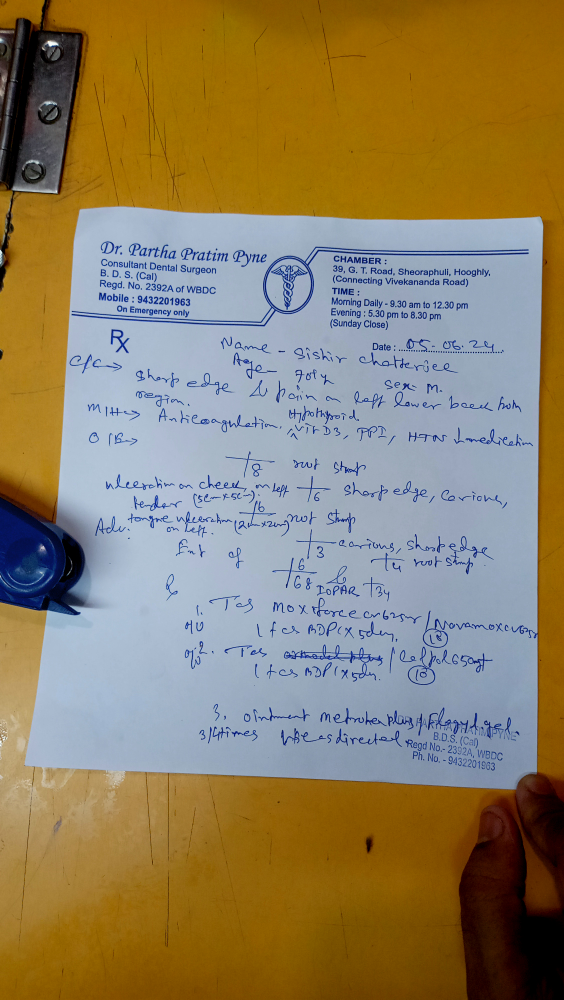 Dr. Partha Pratim Pyne
Consultant Dental Surgeon
B. D. S. (Cal)
Regd. No. 2392A of WBDC
Mobile : 9432201963
On Emergency only
CHAMBER :
39, G. T. Road, Sheoraphuli, Hooghly,
(Connecting Vivekananda Road)
TIME :
Morning Daily - 9.30 am to 12.30 pm
Evening : 5.30 pm to 8.30 pm
(Sunday Close)
Date : 05.06.24
Rx
Name - Sishir Chatterjee
Age - 70 Sex - M.
C/C → Sharp edge & pain on left lower back
region.
Hypothyroid
M/H → Anticoagulation, Vit D3, PPI, HTN medication
O/E →
8 root stump
ulceration on cheek, on left 6 sharp edge, carious,
tender 6 root stump
tongue ulceration on left.
Adv: 3 carious, sharp edge
4 root stump
Ext of 6
68 & IOPAR 34
1. Tab Moxiforce CV 625 / Novamox CV 625
1 tab BDPC X 5 day.
2. Tab / Calpol 650
1 tab BDPC X 5 day. (10)
3. ointment Metrohex plus / Flagyl gel.
3/4 times use as directed
DR. PARTHA PRATIM PYNE
B.D.S. (Cal)
Regd No.- 2392A, WBDC
Ph. No. - 9432201963